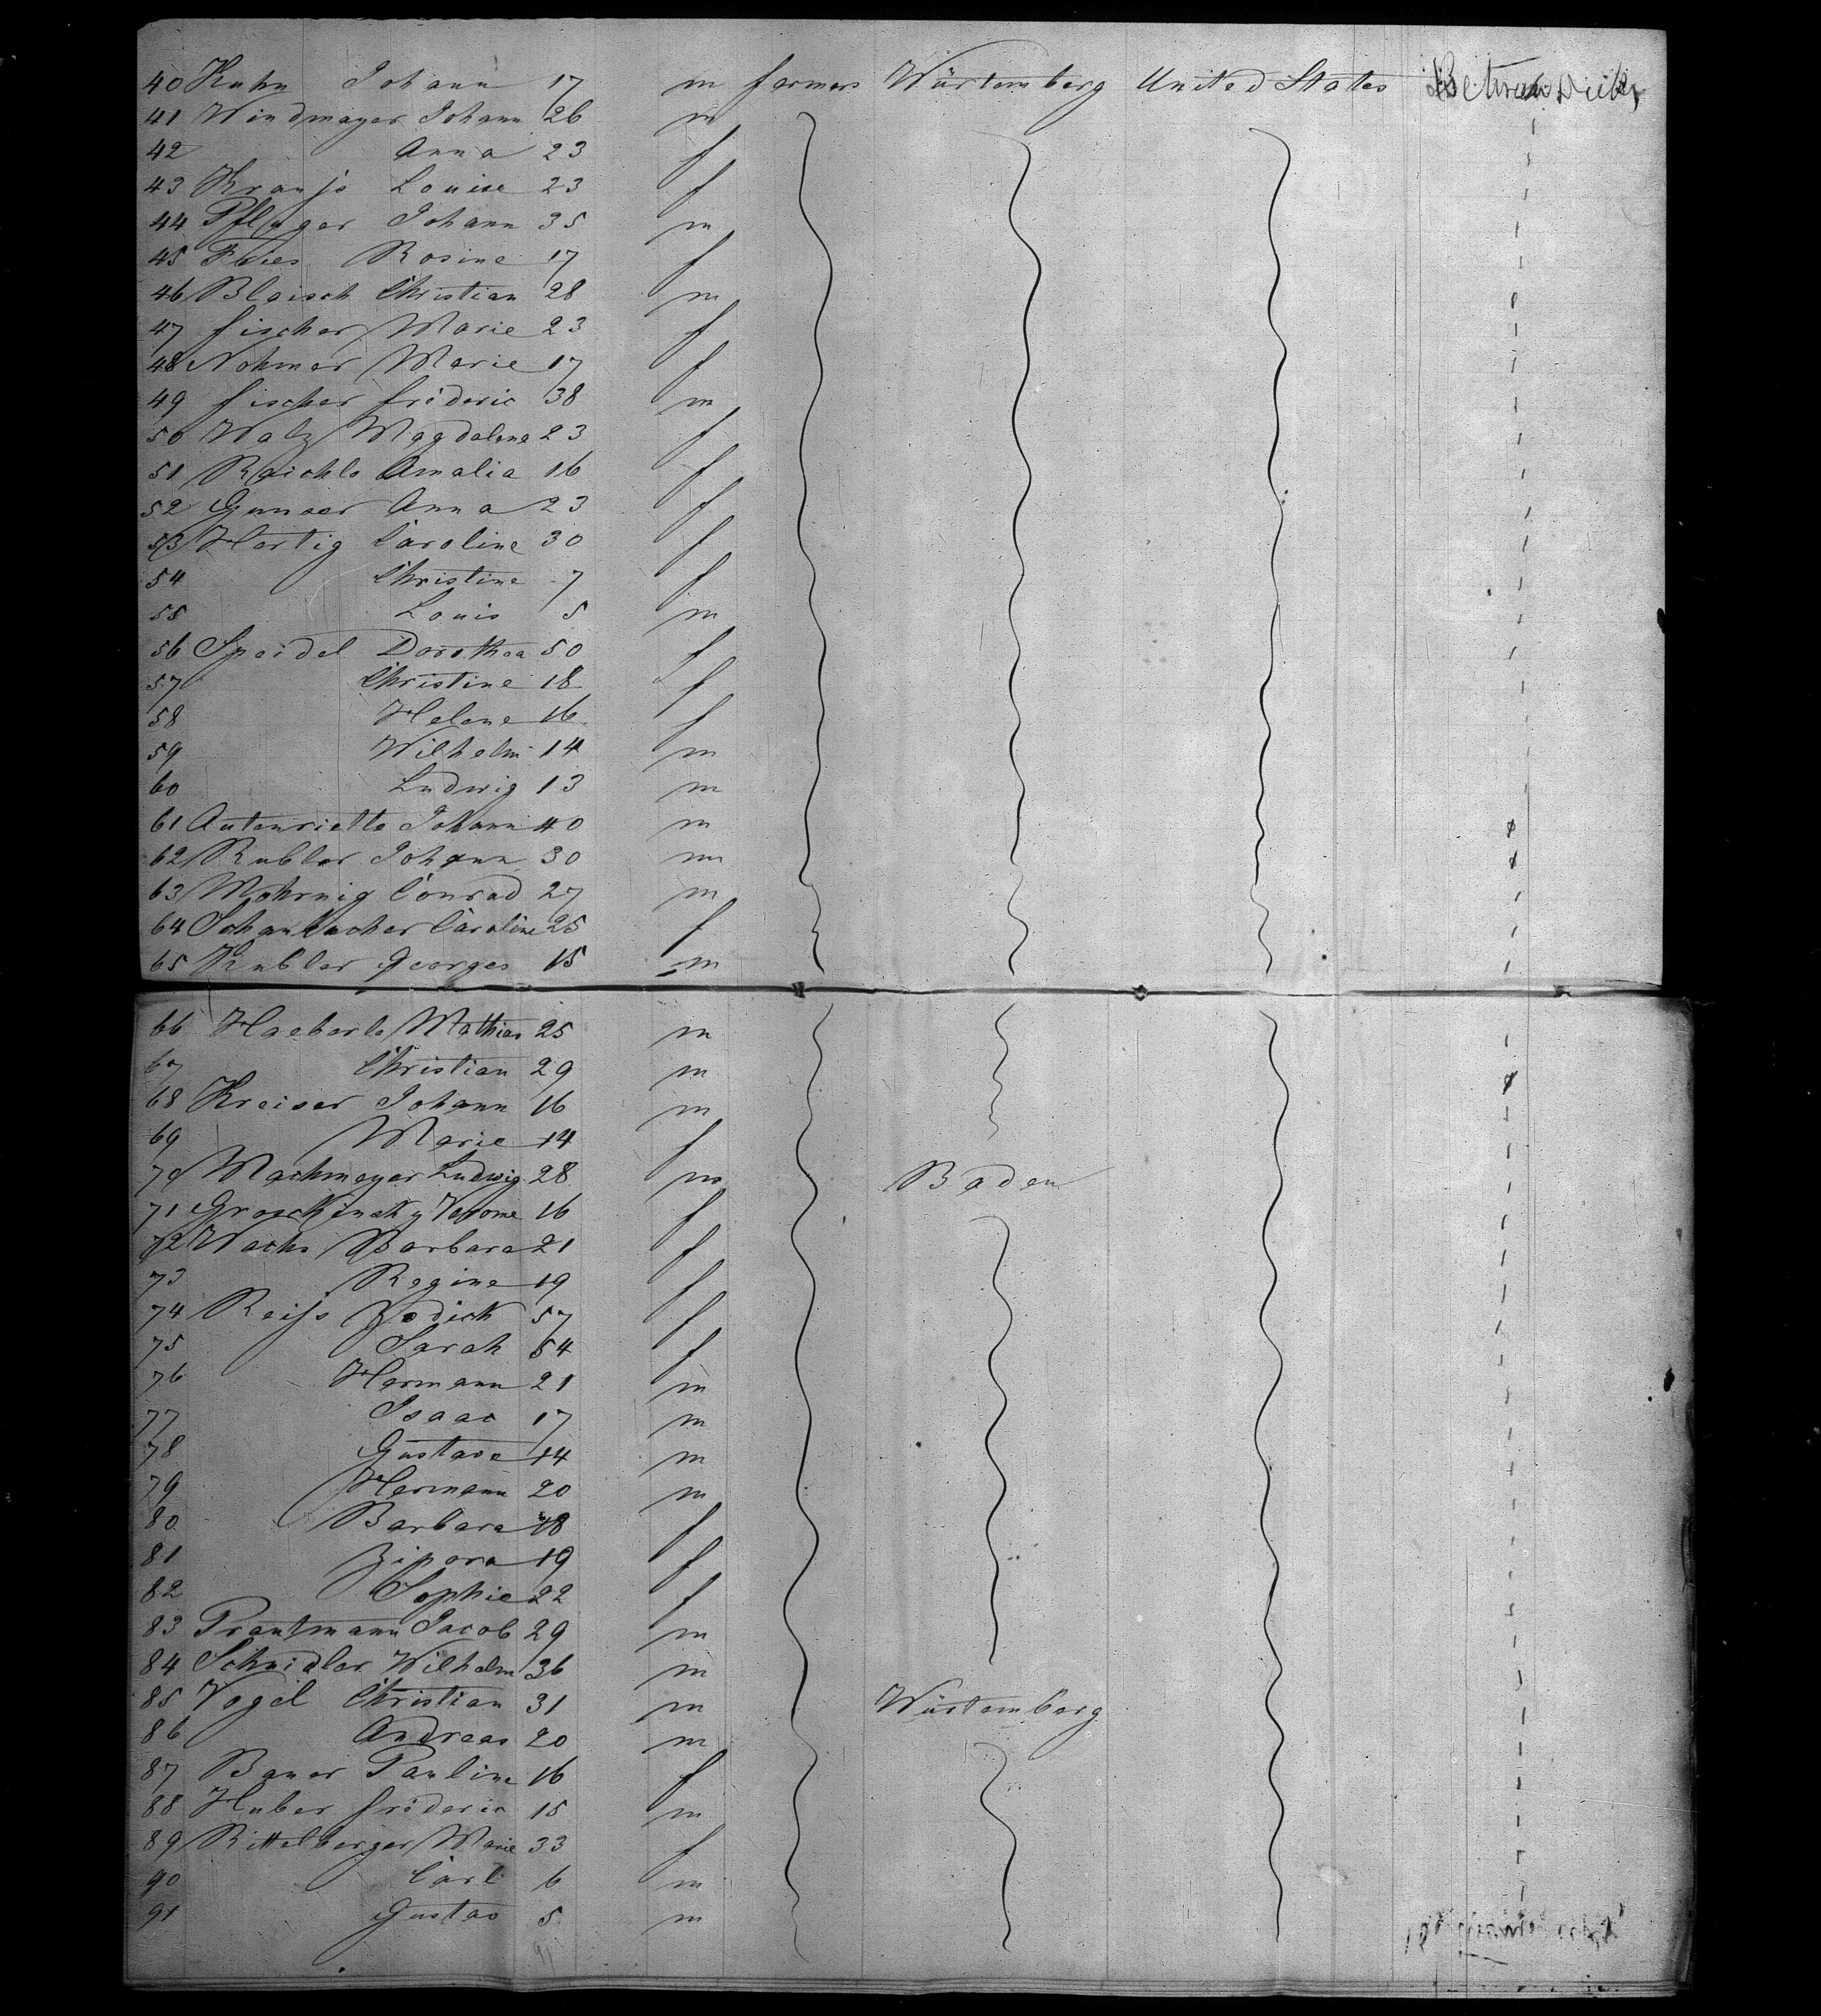 40 Kuhn Johann 17 m farmers Würtemberg United States
41 Windmayer Johann 26 m
42 Anna 23 f
43 Kranfs Louise 23 f
44 Pfluger Johann 35 m
45 Rosine 17 f
46 Blaisch Christian 28 m
47 fischer Marie 23 f
48 Nohmer Marie 17 f
49 fischer frideric 38 m
50 Walz Magdalena 23 f
51 Raichle Amalia 16 f
52 Anna 23 f
53 Hertig Caroline 30 f
54 Christine 7 f
55 Louis 5 m
56 Speidel Dorothea 50 f
57 Christine 18 f
58 Helene 16 f
59 Wilhelm 14 m
60 Ludwig 13 m
61 Autenriette Johann 40 m
62 Kubler Johann 30 m
63 Conrad 27 m
64 Caroline 25 f
65 Kubler Georges 15 m
66 Haeberle Mathias 25 m
67 Christian 29 m
68 Kreiser Johann 16 m
69 Marie 14 f
70 Machmeyer Ludwig 28 m Baden
71 16 f
72 Wachs Barbara 21 f
73 Regine 19 f
74 Reifs 57 f
75 Sarah 54 f
76 Hermann 21 m
77 Isaac 17 m
78 Gustave 14 m
79 Hermann 20 m
80 Barbara 18 f
81 Zipora 19 f
82 Sophie 22 f
83 Trautmann Jacob 29 m
84 Schnidler Wilhelm 36 m
85 Vogel Christian 31 m Würtemberg
86 Andreas 20 m
87 Bauer Pauline 16 f
88 Huber frideric 15 m
89 Rittelberger Marie 33 f
90 Carl 6 m
91 Gustav 5 m
91